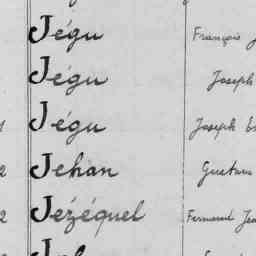 Jégu François
Jégu Joseph
1 Jégu Joseph
2 Jehan Gustave
2 Jézéquel Fernand